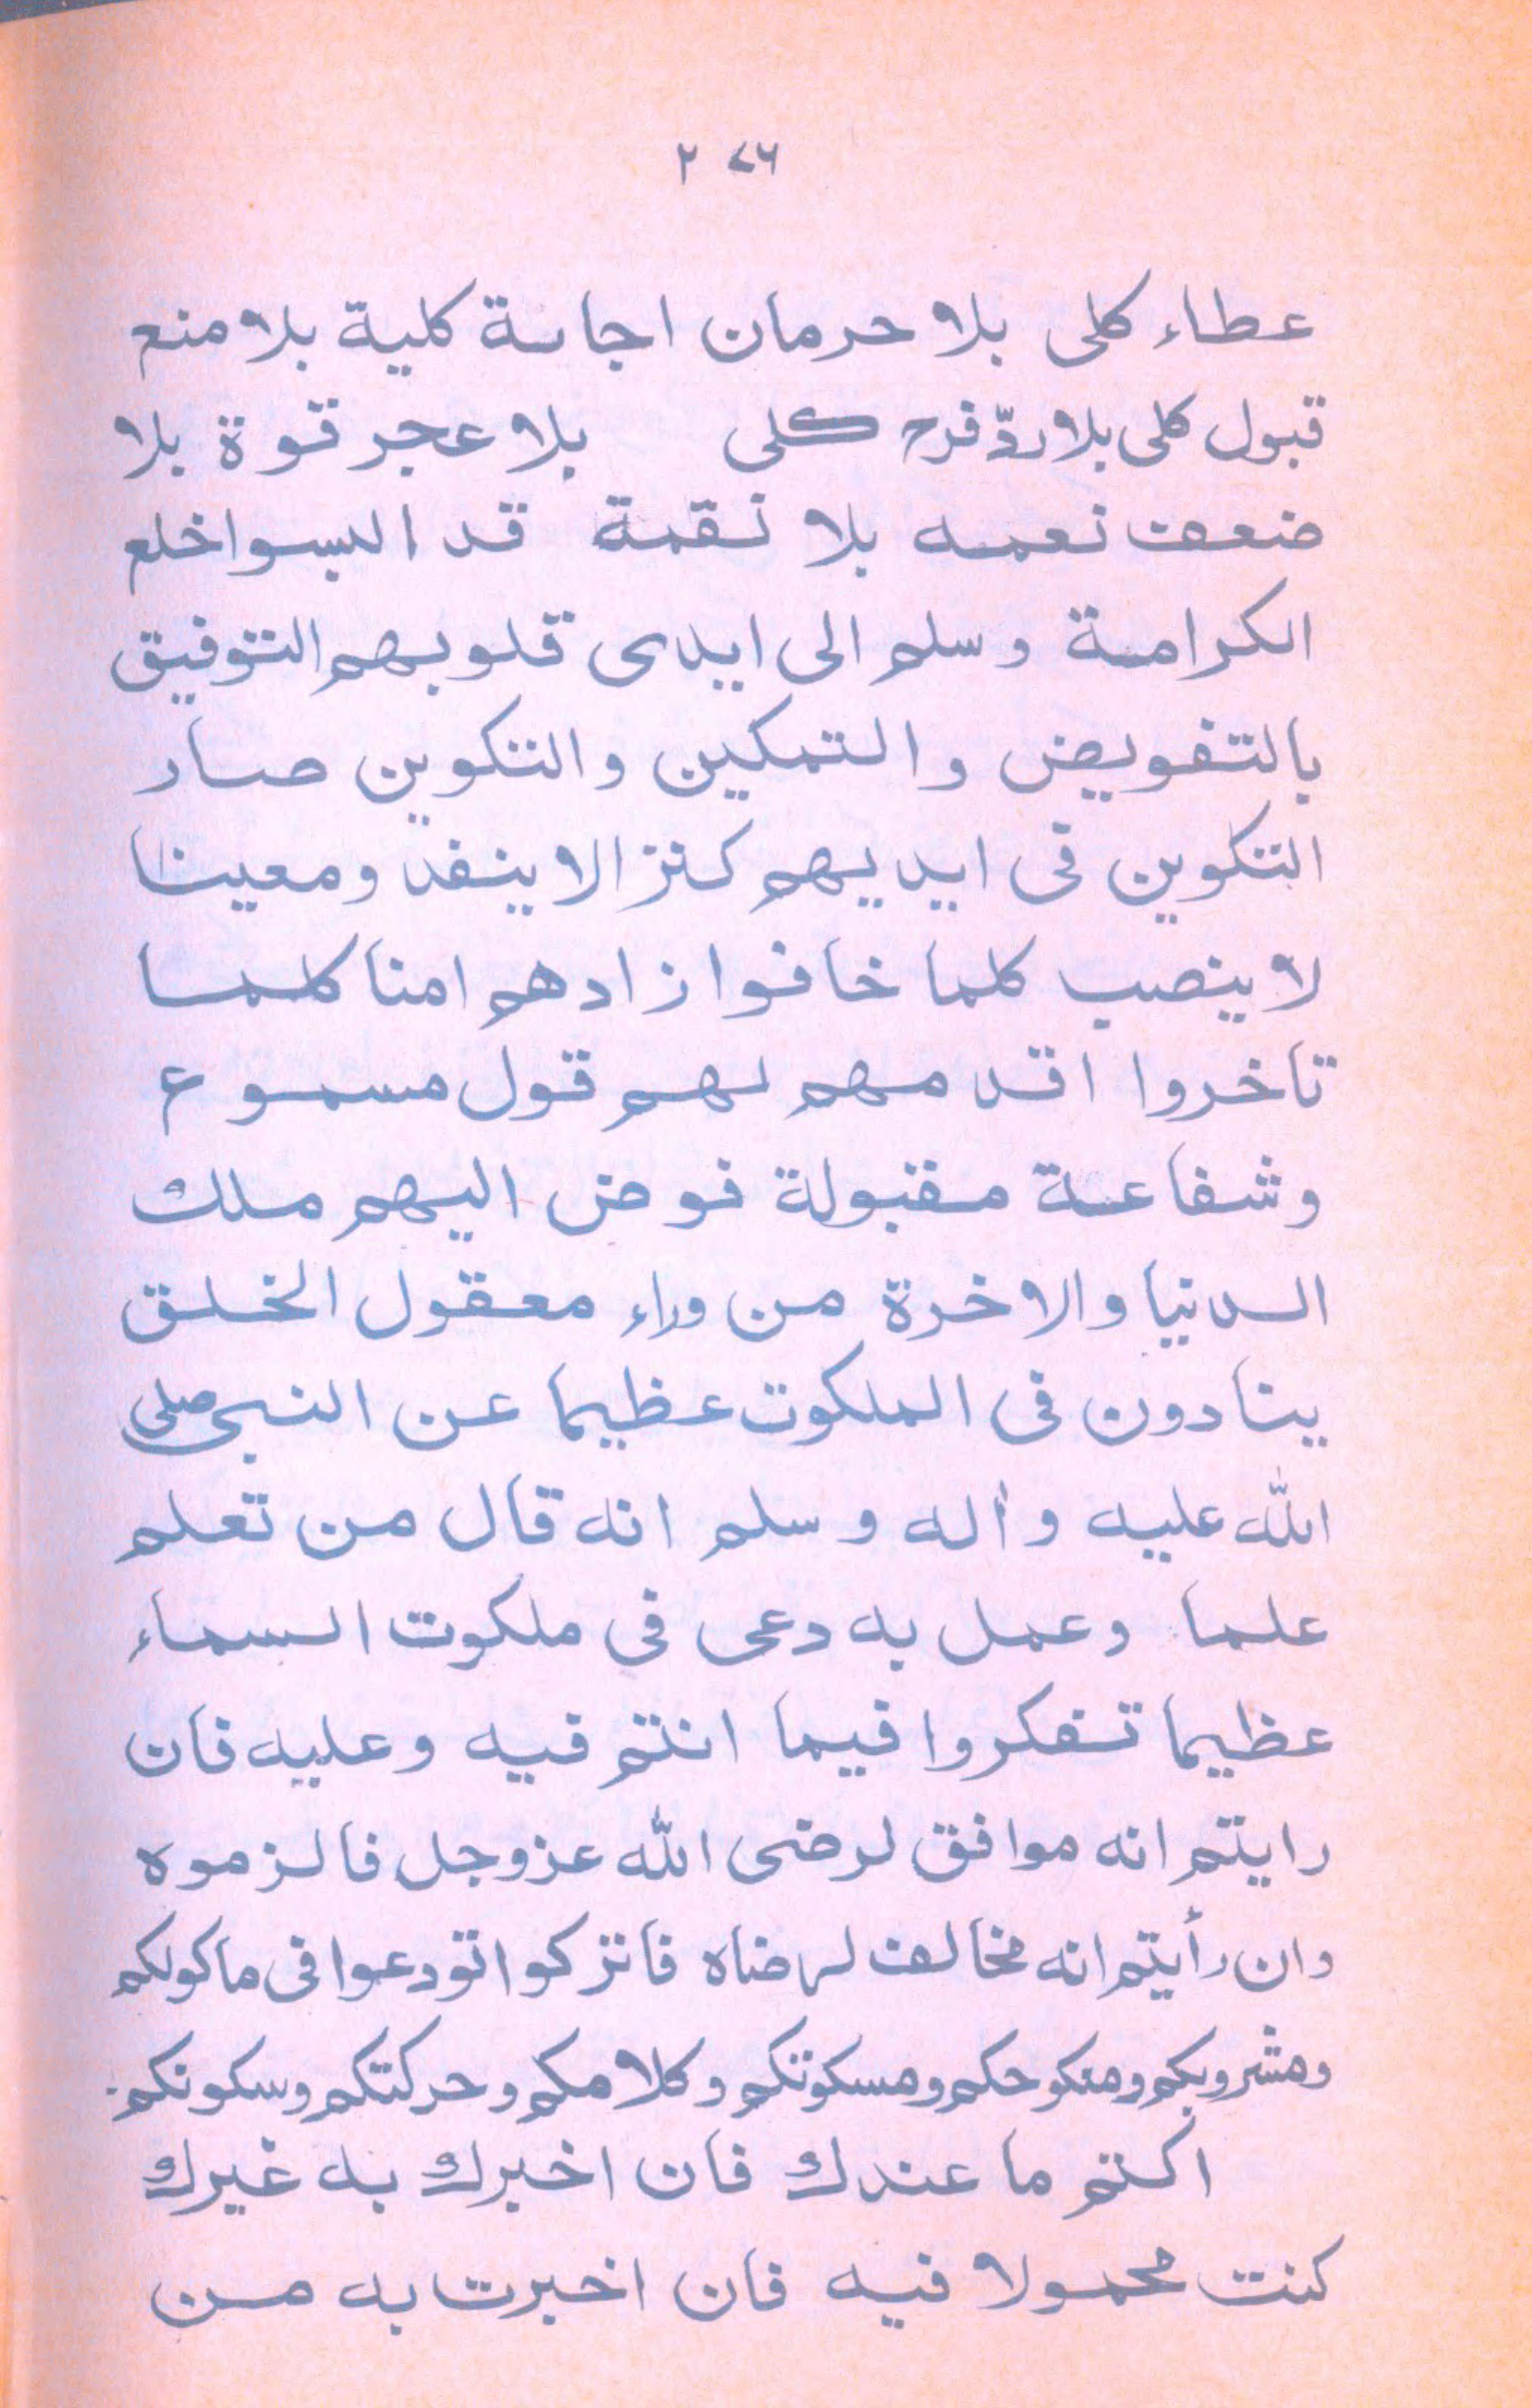 ٢٧٦
عطاء كلى بلا حرمان اجابة كلية بلا منع
قبول كلى بلا ردّ فرح كلى بلا عجر قوة بلا
ضعف نعمه بلا نقمة قد البسوا خلع
الكرامة وسلم الى ايدى قلوبهم التوفيق
بالتفويض والتمكين والتكوين صار
التكوين فى ايديهم كنزا لا ينفد ومعينا
لا ينصب كلما خافوا زادهم امنا كلما
تاخروا اقدمهم لهم قول مسموع
وشفاعة مقبولة فوض اليهم ملك
الدنيا والاخرة من وراء معقول الخلق
ينادون فى الملكوت عظيما عن النبى صلى
الله عليه وأله وسلم انه قال من تعلم
علما وعمل به دعى فى ملكوت السماء
عظيما تفكروا فيما انتم فيه وعليه فان
رايتم انه موافق لرضى الله عزوجل فالزموه
وان رأيتم انه مخالف لرضاه فاتركوا تودعوا فى ماكولكم
ومشروبكم ومنكوحكم ومسكوتكم وكلامكم وحركتكم وسكونكم.
اكتم ما عندك فان اخبرك به غيرك
كنت محمولا فيه فان اخبرت به من